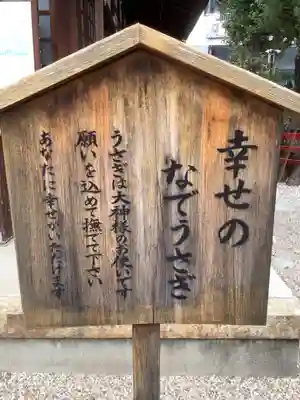 幸せの
なでうさぎ
うさぎは大神様のお使いです
願いを込めて撫でて下さい
あなたに幸せがいただけます